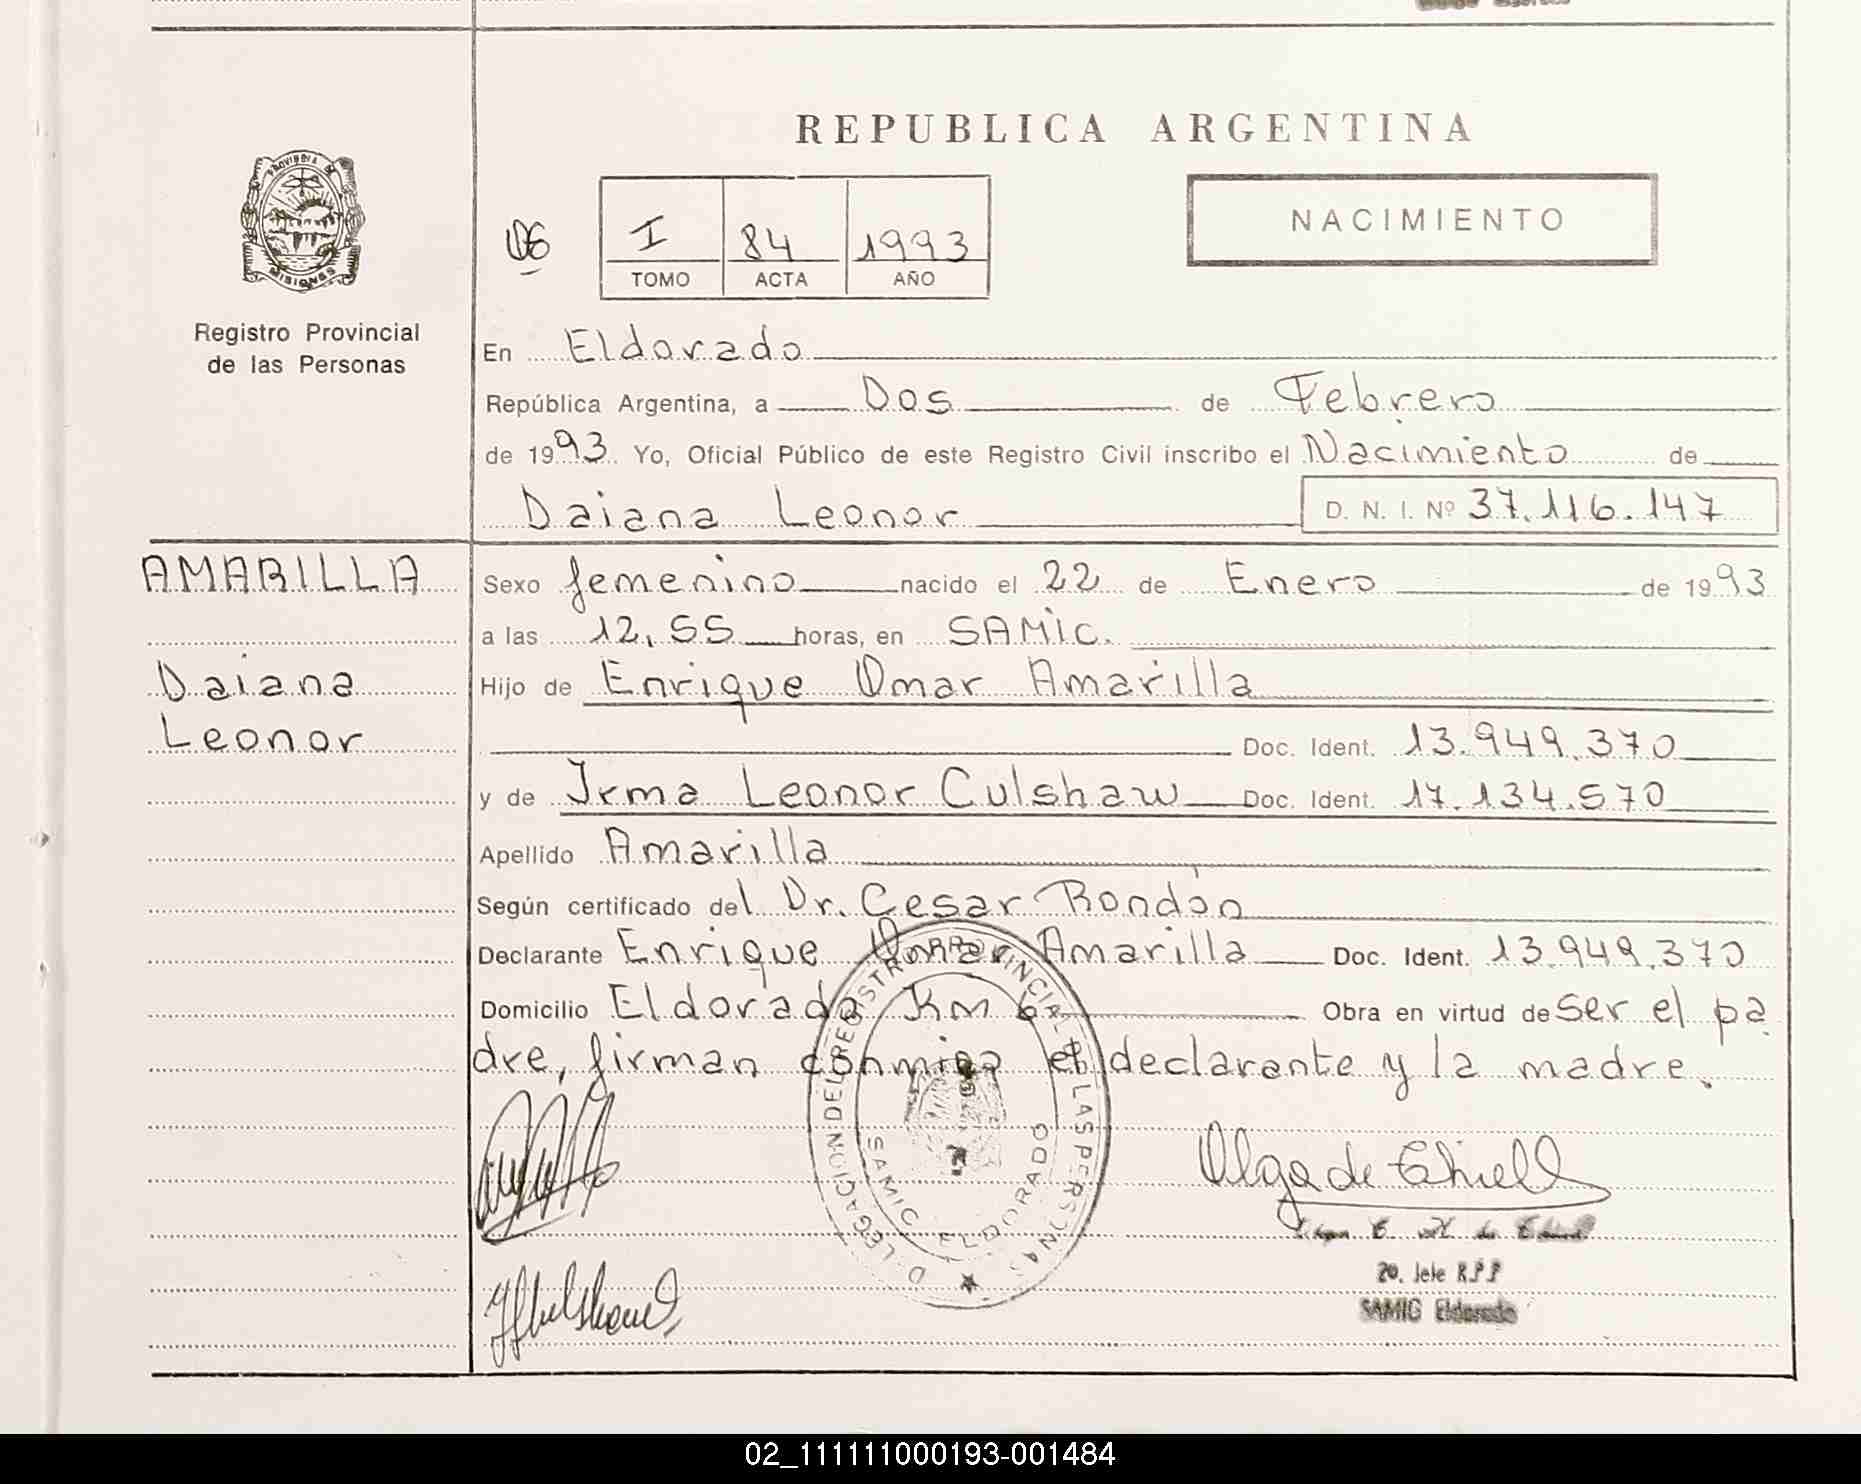 REPUBLICA ARGENTINA
PROVINCIA DE
MISIONES
Registro Provincial
de las Personas
06
I 84 1993
TOMO ACTA AÑO
NACIMIENTO
En Eldorado
República Argentina, a Dos de Febrero
de 1993 Yo, Oficial Público de este Registro Civil inscribo el Nacimiento de
Daiana Leonor D. N. I. Nº 37.116.147
AMARILLA
Daiana
Leonor
Sexo femenino nacido el 22 de Enero de 1993
a las 12,55 horas, en SAMIC.
Hijo de Enrique Omar Amarilla
Doc. Ident. 13.949.370
y de Irma Leonor Culshaw Doc. Ident. 17.134.570
Apellido Amarilla
Según certificado del Dr. Cesar Rondón
Declarante Enrique Omar Amarilla Doc. Ident. 13.949.370
Domicilio Eldorado Km 6 Obra en virtud de ser el pa
dre, firman conmigo el declarante y la madre.
DELEGACION DEL REGISTRO PROVINCIAL DE LAS PERSONAS
SAMIC ELDORADO
Olga de Thiell
20. Jefe R.P.P
SAMIC Eldorado
02_111111000193-001484